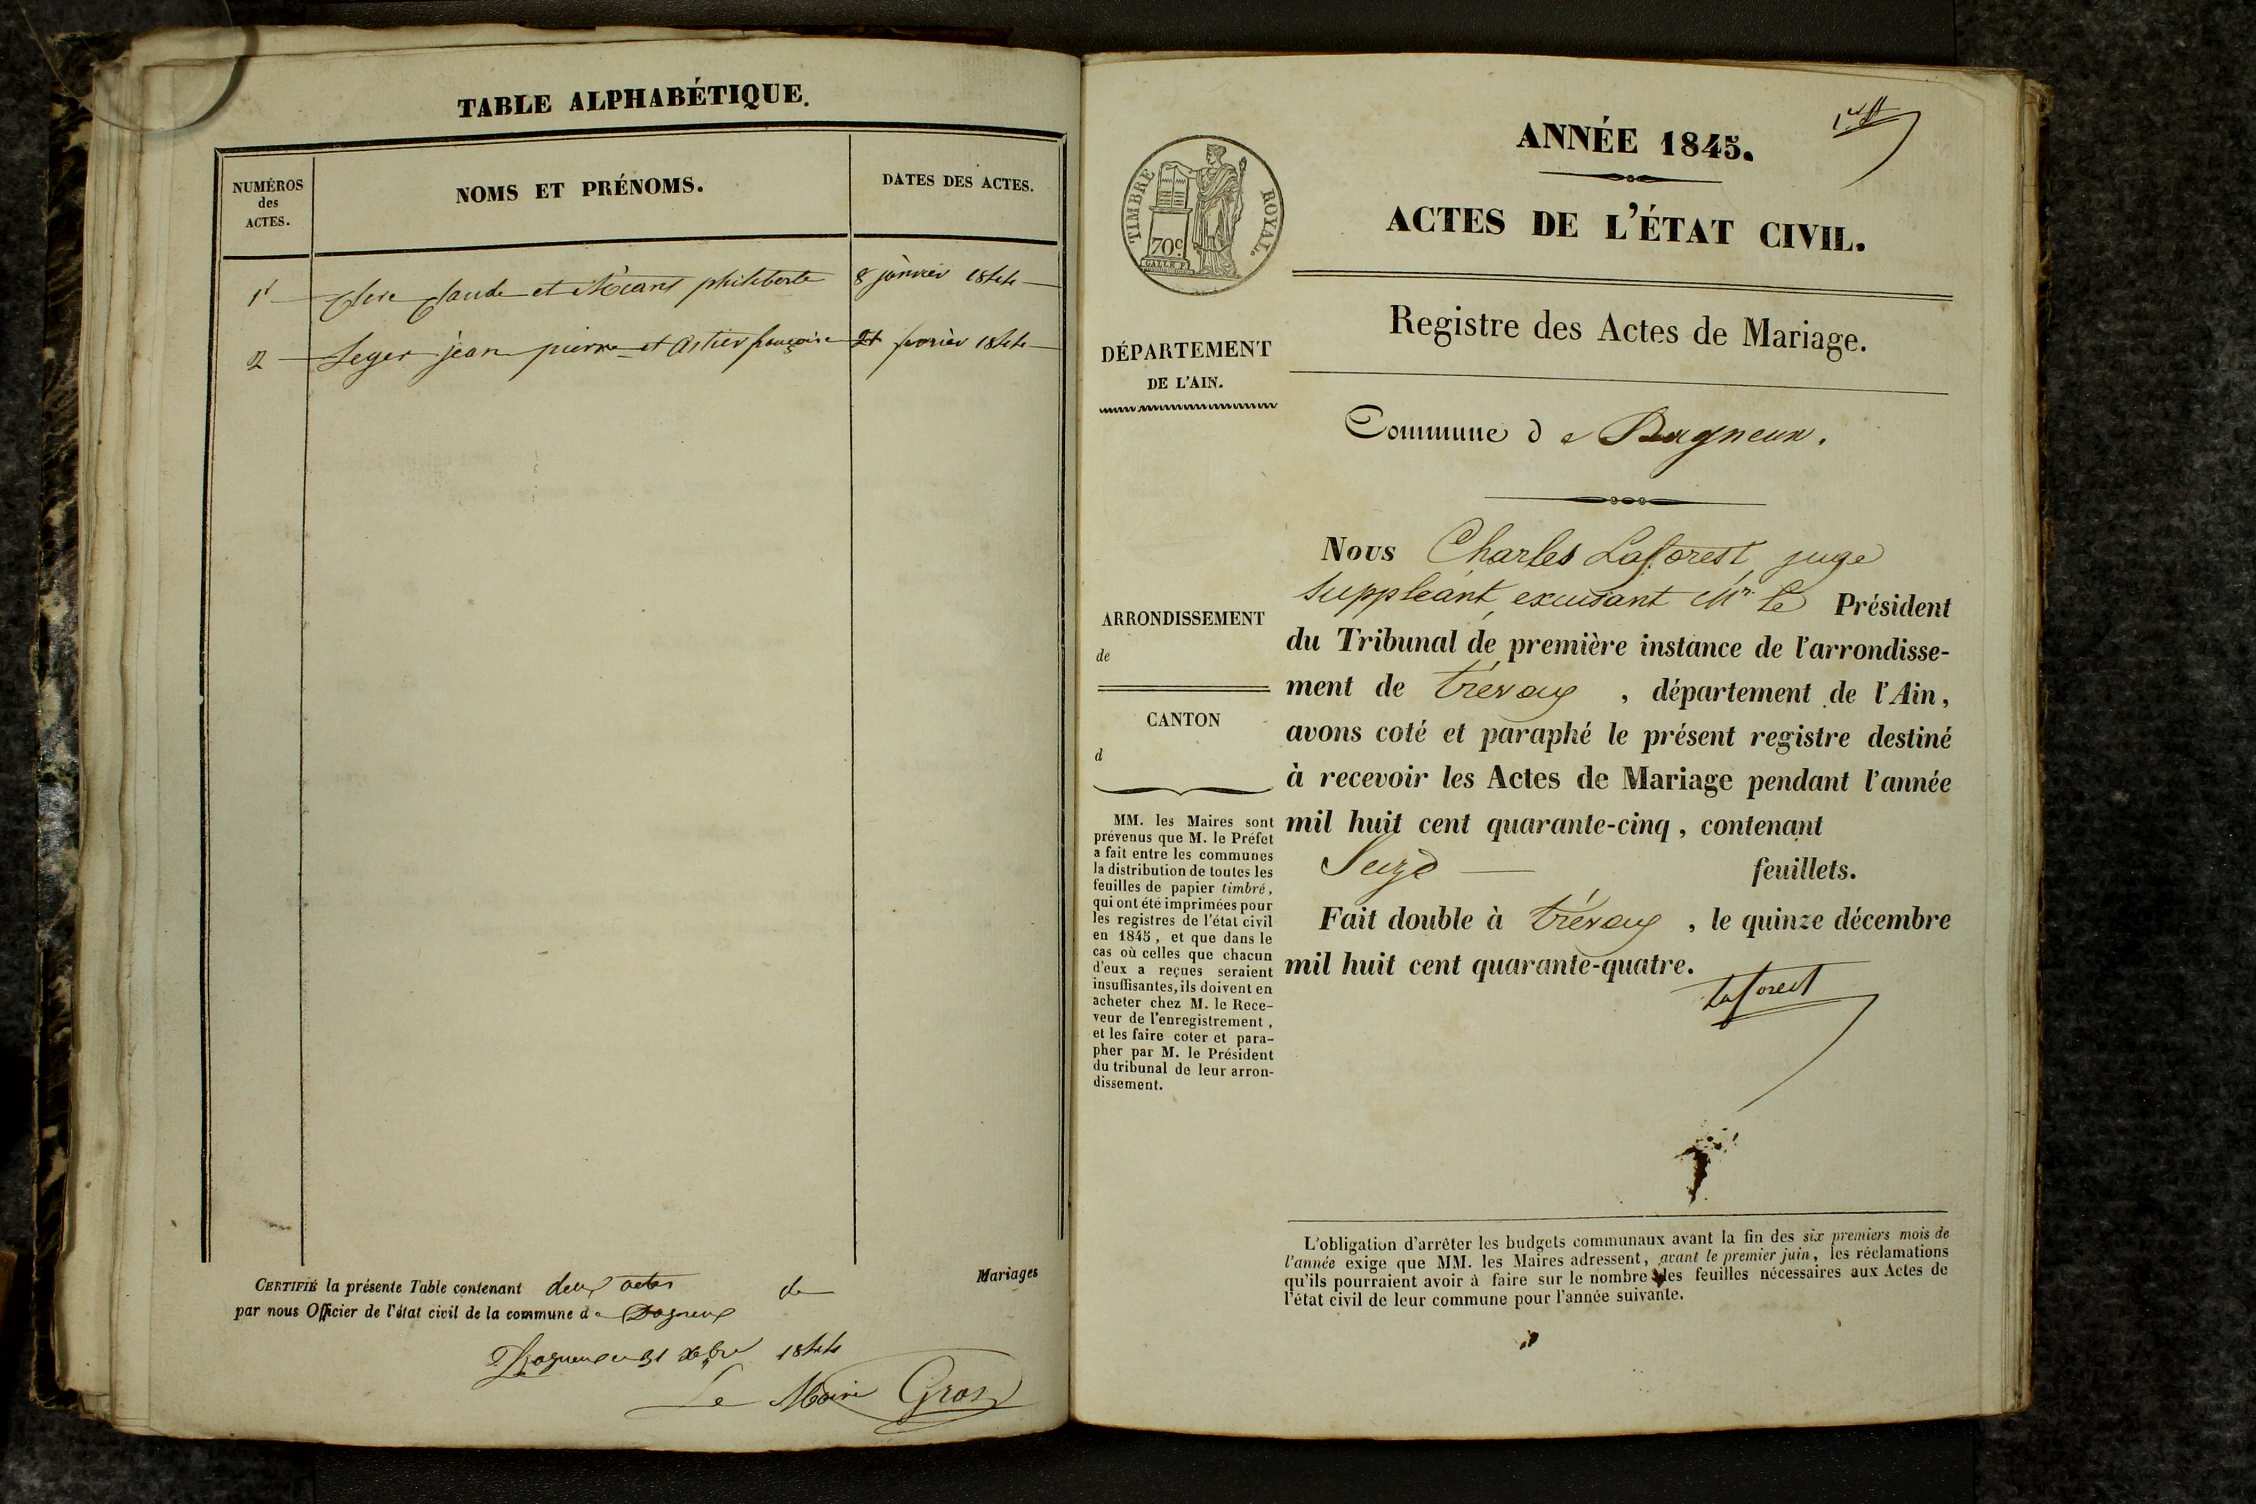 TABLE ALPHABÉTIQUE.
NUMÉROS
des
ACTES.
NOMS ET PRÉNOMS.
DATES DES ACTES.
1 Claude et philiberte 8 janvier 1844
2 Leger jean pierre et Astier françoise février 1844
CERTIFIÉ la présente Table contenant deux actes de Mariages
par nous Officier de l'état civil de la commune de Dagneux
Dagneux 31 1844
Le Maire Gros
1er
ANNÉE 1845.
ACTES DE L'ÉTAT CIVIL.
TIMBRE ROYAL.
70c
Registre des Actes de Mariage.
DÉPARTEMENT
DE L'AIN.
Commune de Dagneux.
Nous Charles Laforest, juge
suppléant, excusant Mr le Président
du Tribunal de première instance de l'arrondisse-
ment de trévoux, département de l'Ain,
avons coté et paraphé le présent registre destiné
à recevoir les Actes de Mariage pendant l'année
mil huit cent quarante-cinq, contenant
Seize feuillets.
Fait double à trévoux, le quinze décembre
mil huit cent quarante-quatre.
Laforest
ARRONDISSEMENT
de
CANTON
d
MM. les Maires sont
prévenus que M. le Préfet
a fait entre les communes
la distribution de toutes les
feuilles de papier timbré,
qui ont été imprimées pour
les registres de l'état civil
en 1845, et que dans le
cas où celles que chacun
d'eux a reçues seraient
insuffisantes, ils doivent en
acheter chez M. le Rece-
veur de l'enregistrement,
et les faire coter et para-
pher par M. le Président
du tribunal de leur arron-
dissement.
L'obligation d'arrêter les budgets communaux avant la fin des six premiers mois de
l'année exige que MM. les Maires adressent, avant le premier juin, les réclamations
qu'ils pourraient avoir à faire sur le nombre des feuilles nécessaires aux Actes de
l'état civil de leur commune pour l'année suivante.